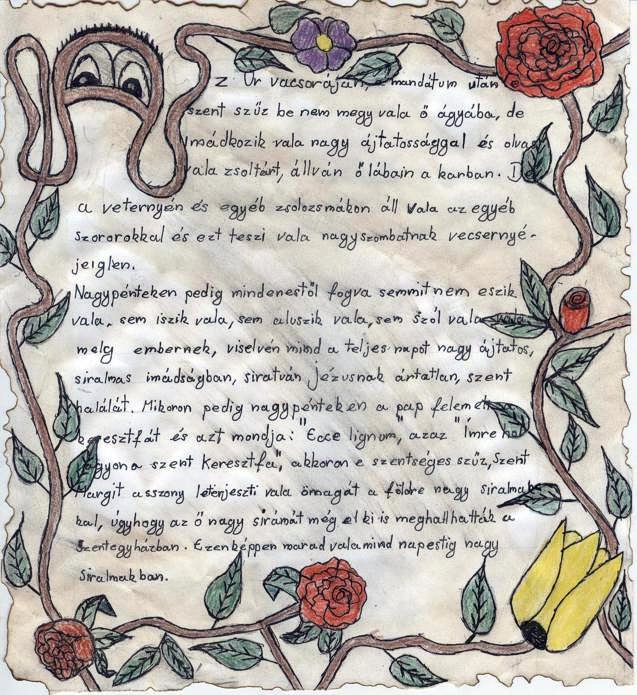 Az Úr vacsoráján, a mandátum után e
szent szűz be nem megy vala ő ágyába, de
imádkozik vala nagy ájtatossággal és olvas
vala zsoltárt, állván ő lábain a karban. De
a veternyén és egyéb zsolozsmákon áll vala az egyéb
szororokkal és ezt teszi vala nagyszombatnak vecsernyé-
jeiglen.
Nagypénteken pedig mindenestől fogva semmit nem eszik
vala, sem iszik vala, sem aluszik vala, sem szól vala
mely embernek, viselvén mind a teljes napot nagy ájtatos,
siralmas imádságban, siratván Jézusnak ártatlan, szent
halálát. Mikoron pedig nagypénteken a pap felemeli
keresztfát és azt mondja: "Ecce lignum", azaz "Ímre hol
vagyon a szent keresztfa", akkoron e szentséges szűz, Szent
Margit asszony leterjeszti vala önmagát a földre nagy siralmak-
kal, úgyhogy az ő nagy sirámát még el ki is meghallhatták a
szentegyházban. Ezenképpen marad vala mind napestig nagy
siralmakban.